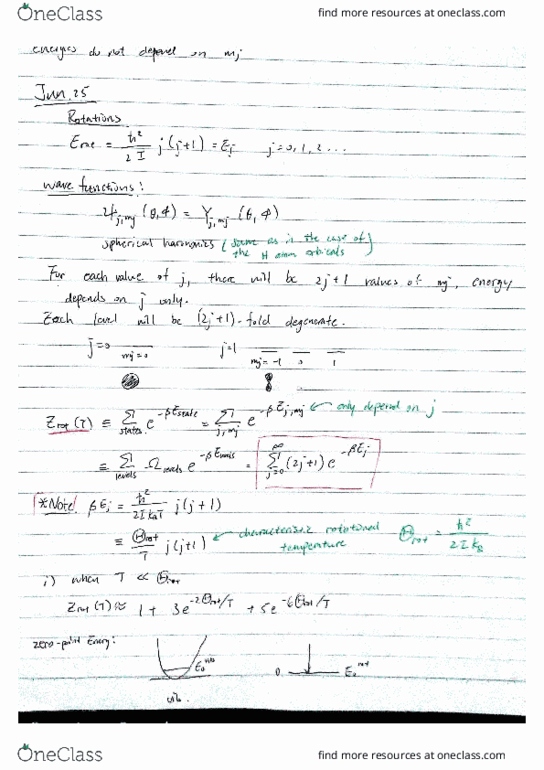 OneClass find more resources at oneclass.com
energies do not depend on mj
Jun. 25
Rotations
Erot = ħ²/2I j(j+1) = Ej j=0, 1, 2 ...
wave functions:
Ψj,mj (θ,Φ) = Yj,mj (θ,Φ)
spherical harmonics (same as in the case of
the H atom orbitals)
For each value of j, there will be 2j+1 values of mj, energy
depends on j only.
Each level will be (2j+1)-fold degenerate.
j=0 mj=0 j=1 mj=-1 0 1
Zrot (T) ≡ Σstates e^-βEstate = Σj,mj e^-βEj,mj ← only depend on j
≡ Σlevels Ωlevels e^-βE = Σj=0^∞ (2j+1) e^-βEj
*Note! βEj = ħ²/2IkBT j(j+1)
≡ Θrot/T j(j+1) ← characteristic rotational
temperature Θrot = ħ²/2IkB
i) when T ≪ Θrot
Zrot (T) ≈ 1 + 3e^-2Θrot/T + 5e^-6Θrot/T
zero-point Energy: E0^vib 0 E0^rot
vib.
OneClass find more resources at oneclass.com